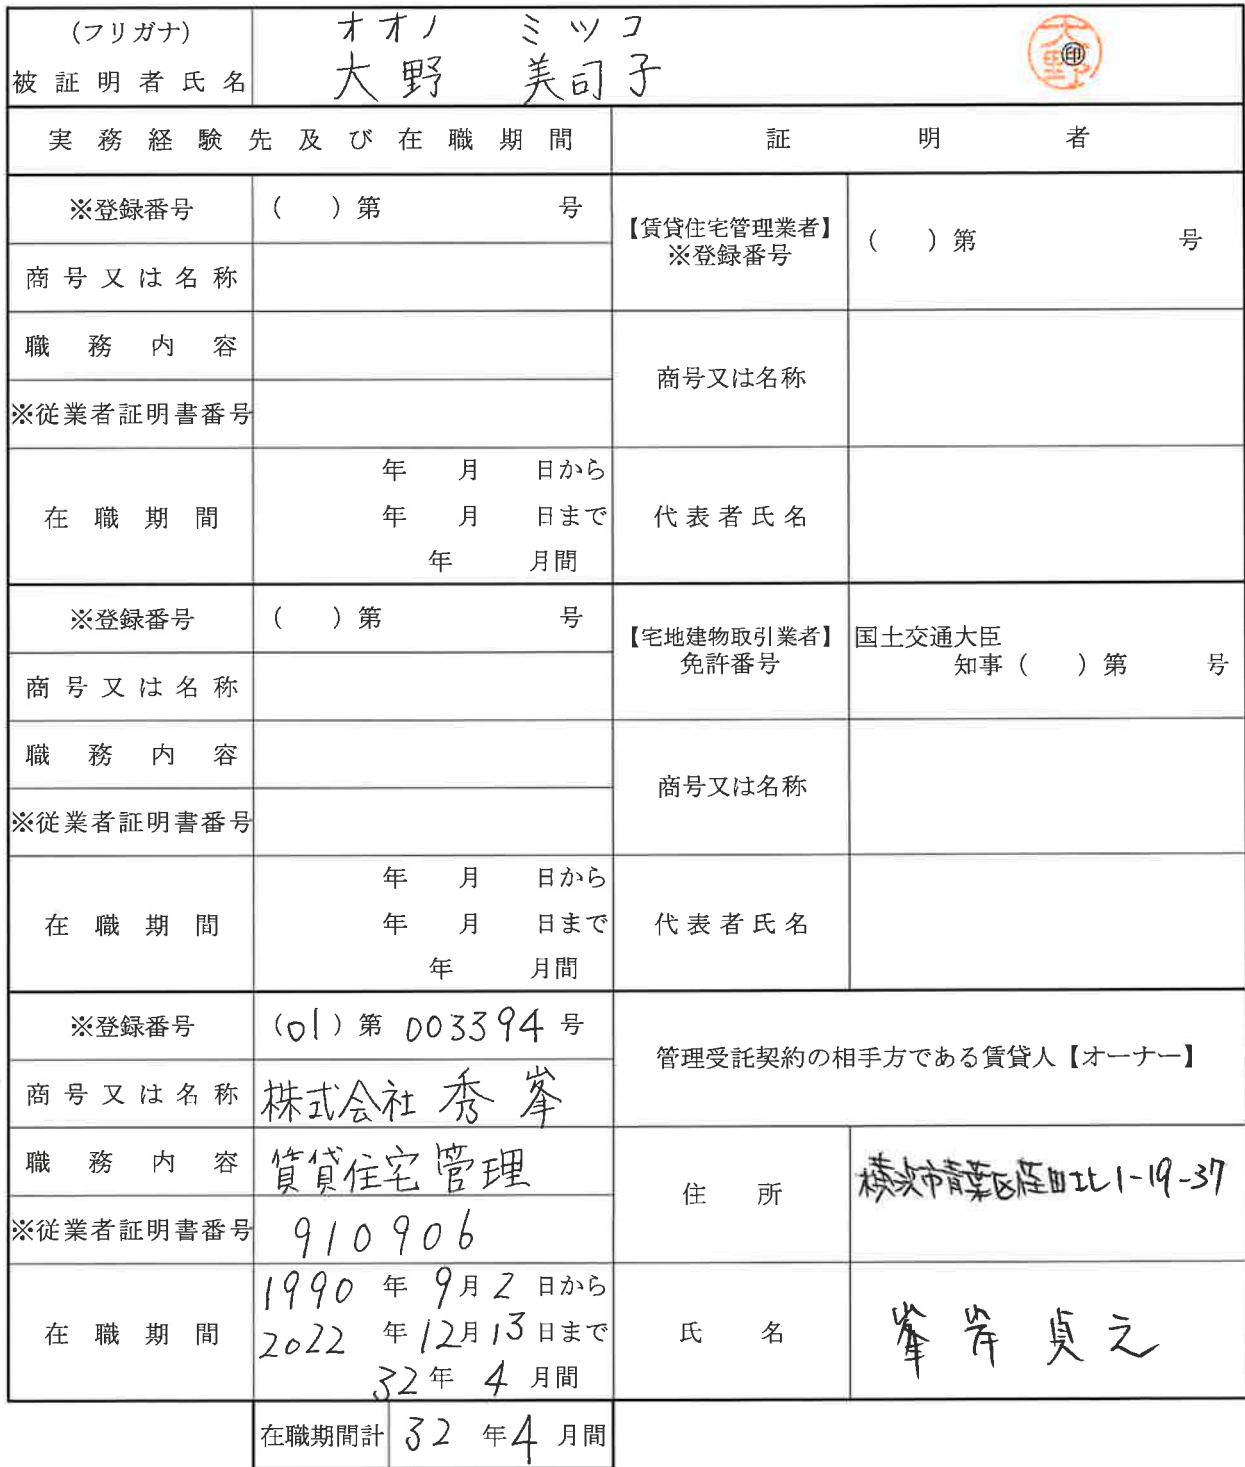 (フリガナ) オオノ ミツコ
被証明者氏名 大野 美司子 大野 印
実務経験先及び在職期間 証明者
※登録番号 ( ) 第 号 【賃貸住宅管理業者】 ※登録番号 ( ) 第 号
商号又は名称
職務内容 商号又は名称
※従業者証明書番号
在職期間 年 月 日から
年 月 日まで 代表者氏名
年 月間
※登録番号 ( ) 第 号 【宅地建物取引業者】 免許番号 国土交通大臣
知事 ( ) 第 号
商号又は名称
職務内容 商号又は名称
※従業者証明書番号
在職期間 年 月 日から
年 月 日まで 代表者氏名
年 月間
※登録番号 (01) 第 003394 号 管理受託契約の相手方である賃貸人【オーナー】
商号又は名称 株式会社 秀峯
職務内容 賃貸住宅管理 住所 横浜市青葉区荏田北1-19-37
※従業者証明書番号 910906
在職期間 1990 年 9月 2 日から
2022 年 12月 13 日まで 氏名 峯岸 貞之
32 年 4 月間
在職期間計 32 年 4 月間